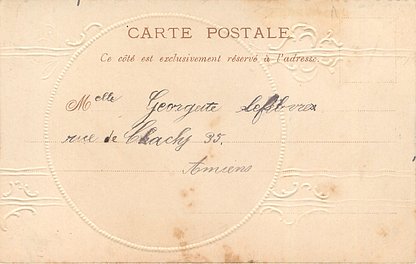 CARTE POSTALE.
Ce côté est exclusivement réservé à l'adresse.
Melle Georgette
rue de 35.
Amiens